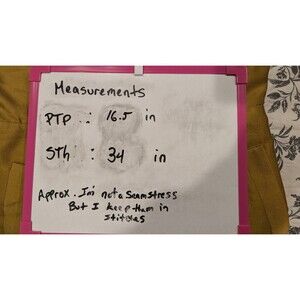 Measurements
PTP : 16.5 in
STh : 34 in
Approx. I'm not a Seamstress
But I keep them in
stitches